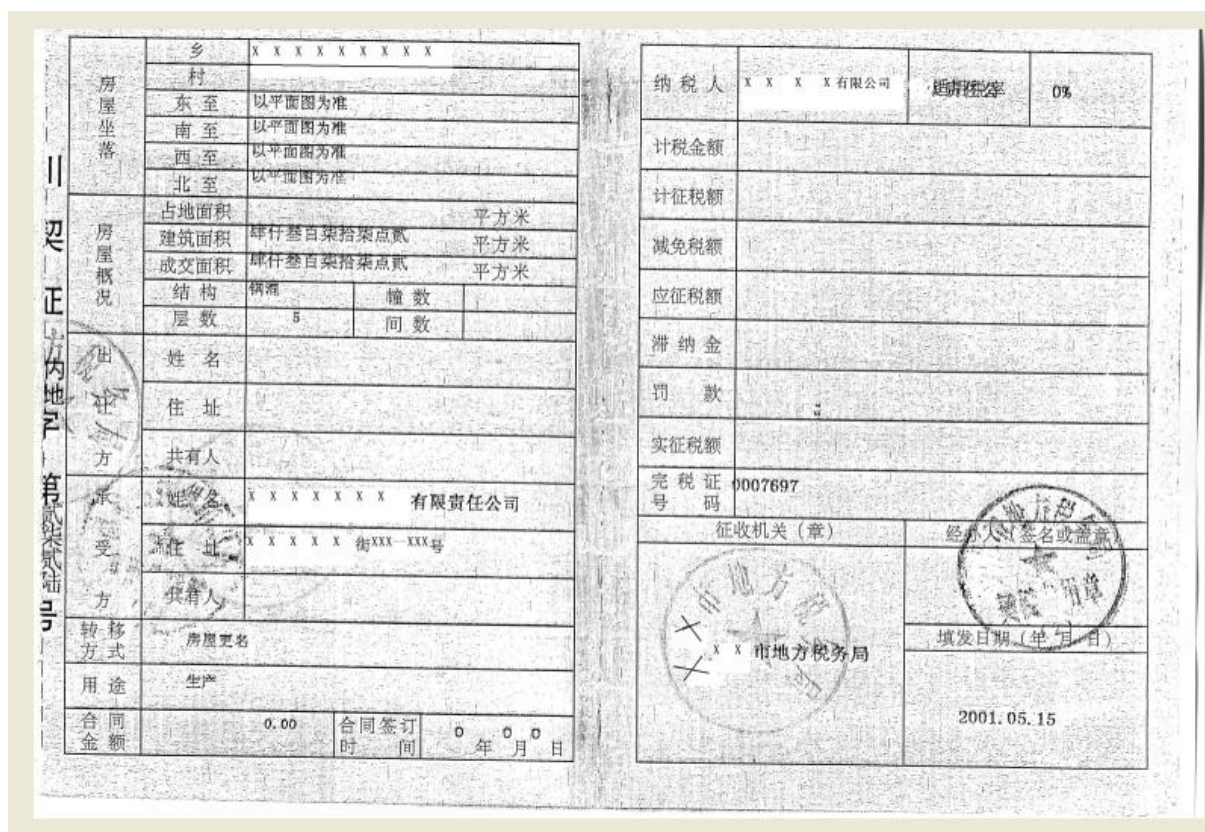 川 契 证 方内地字 第贰柒贰陆号
房屋坐落
乡 X X X X X X X X X
村
东 至 以平面图为准
南 至 以平面图为准
西 至 以平面图为准
北 至 以平面图为准
房屋概况
占地面积 平方米
建筑面积 肆仟叁百柒拾柒点贰 平方米
成交面积 肆仟叁百柒拾柒点贰 平方米
结 构 钢混 幢 数
层 数 5 间 数
出让方
姓 名
住 址
共有人
承受方
姓 名 X X X X X X X 有限责任公司
住 址 X X X X X 街XXX—XXX号
共有人
转移方式 房屋更名
用 途 生产
合同金额 0.00 合同签订时间 0年 0月 0日
纳 税 人 X X X X有限公司 0%
计税金额
计征税额
减免税额
应征税额
滞 纳 金
罚 款
实征税额
完 税 证 号 码 0007697
征收机关（章）
经办人（签名或盖章）
市地方税务局
X X 市地方税务局
填发日期（年 月 日）
2001.05.15